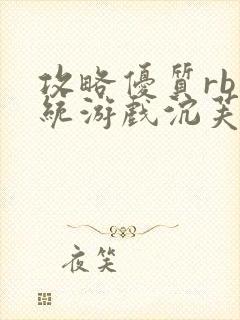 攻略優質rb
統游戲沉芙
夜笑